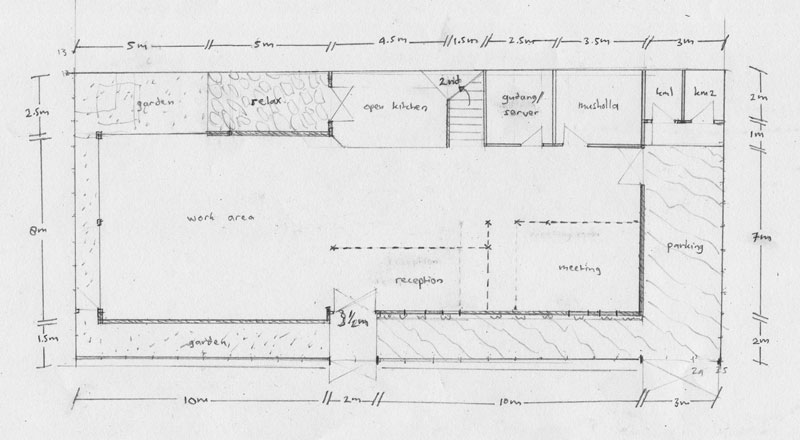 13
5m
5m
4.5m
1.5m
2.5m
3.5m
3m
2.5m
garden
relax
open kitchen
2nd
gudang/
server
musholla
km1
km2
2m
1m
8m
work area
reception
meeting
parking
7m
1.5m
garden
1/2m
2m
24
25
10m
2m
10m
3m